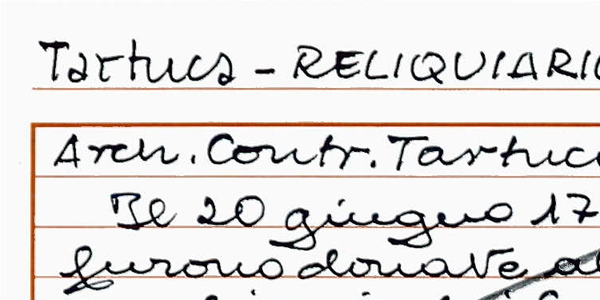 Tartuca - RELIQUIARIO
Arch. Contr. Tartuca
Il 20 giugno 17
furono donate al